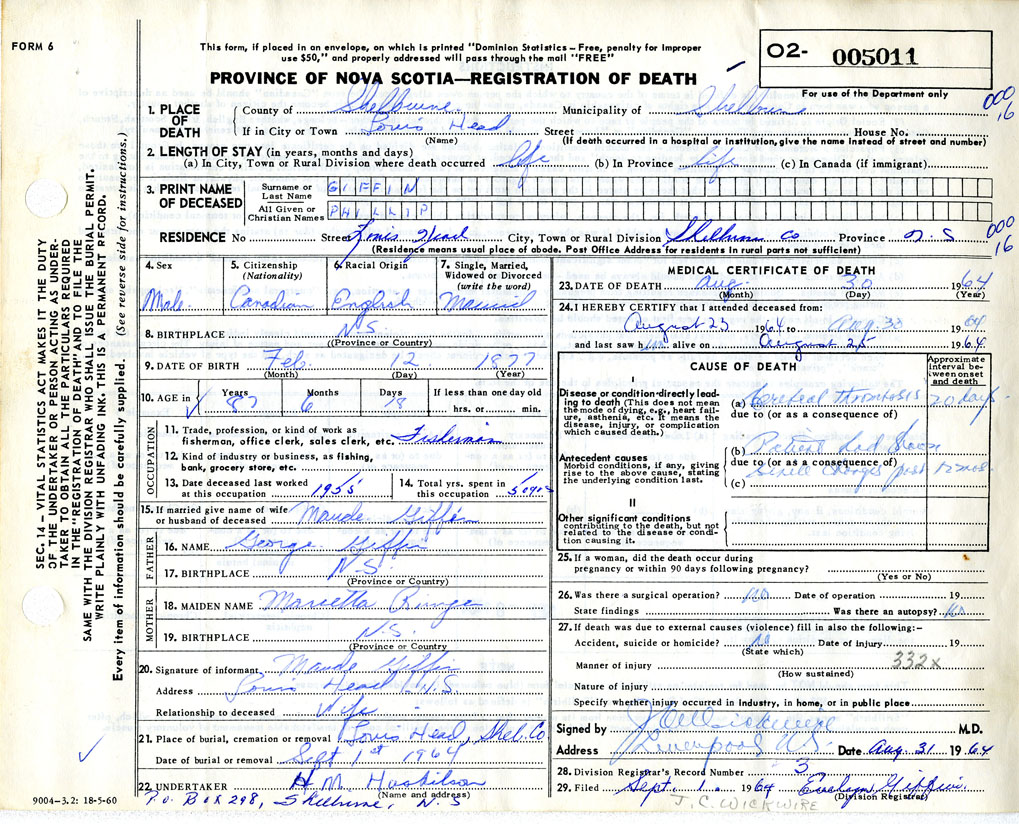 FORM 6
This form, if placed in an envelope, on which is printed "Dominion Statistics – Free, penalty for improper
use $50," and properly addressed will pass through the mail "FREE"
PROVINCE OF NOVA SCOTIA—REGISTRATION OF DEATH
O2- 005011
For use of the Department only
000
16
1. PLACE OF DEATH
County of Shelburne Municipality of Shelburne
If in City or Town Louis Head Street House No.
(Name) (If death occurred in a hospital or institution, give the name instead of street and number)
2. LENGTH OF STAY (in years, months and days)
(a) In City, Town or Rural Division where death occurred life (b) In Province life (c) In Canada (if immigrant)
3. PRINT NAME OF DECEASED
Surname or Last Name GIFFIN
All Given or Christian Names PHILLIP
RESIDENCE No Street Louis Head City, Town or Rural Division Shelburne Co Province N.S
(Residence means usual place of abode. Post Office Address for residents in rural parts not sufficient)
000
16
4. Sex Male
5. Citizenship (Nationality) Canadian
6. Racial Origin English
7. Single, Married, Widowed or Divorced (write the word) Married
8. BIRTHPLACE N.S.
(Province or Country)
9. DATE OF BIRTH Feb. 12 1877
(Month) (Day) (Year)
10. AGE in Years 87 Months 6 Days 18 If less than one day old hrs. or min.
OCCUPATION
11. Trade, profession, or kind of work as
fisherman, office clerk, sales clerk, etc. Fisherman
12. Kind of industry or business, as fishing,
bank, grocery store, etc.
13. Date deceased last worked at this occupation 1955
14. Total yrs. spent in this occupation 50 yrs
15. If married give name of wife
or husband of deceased Maude Giffin
FATHER
16. NAME George Giffin
17. BIRTHPLACE N.S.
(Province or Country)
MOTHER
18. MAIDEN NAME Marietta Ringe
19. BIRTHPLACE N.S.
(Province or Country
20. Signature of informant Maude Giffin
Address Louis Head N.S.
Relationship to deceased Wife
21. Place of burial, cremation or removal Louis Head, Shel. Co
Date of burial or removal Sept 1st 1964
22. UNDERTAKER H.M. Huskilson
(Name and address)
P.O. BOX 298, Shelburne, N.S
9004-3.2: 18-5-60
MEDICAL CERTIFICATE OF DEATH
23. DATE OF DEATH Aug. 30 1964
(Month) (Day) (Year)
24. I HEREBY CERTIFY that I attended deceased from:
August 23 1964 to Aug. 30 1964
and last saw him alive on August 25 1964
CAUSE OF DEATH
Approximate interval between onset and death
I
Disease or condition directly leading to death (This does not mean the mode of dying, e.g., heart failure, asthenia, etc. It means the disease, injury, or complication which caused death.)
(a) Cerebral thrombosis 20 days
due to (or as a consequence of)
Antecedent causes
Morbid conditions, if any, giving rise to the above cause, stating the underlying condition last.
(b) Patient had
due to (or as a consequence of)
senile changes past 12 mos
(c)
II
Other significant conditions
contributing to the death, but not related to the disease or condition causing it.
25. If a woman, did the death occur during
pregnancy or within 90 days following pregnancy?
(Yes or No)
26. Was there a surgical operation? No Date of operation 19
State findings Was there an autopsy? No
27. If death was due to external causes (violence) fill in also the following:–
Accident, suicide or homicide? No Date of injury 19
(State which)
Manner of injury 332x
(How sustained)
Nature of injury
Specify whether injury occurred in industry, in home, or in public place
Signed by J C Wickwire M.D.
Address Liverpool N.S. Date Aug 31 1964
28. Division Registrar's Record Number 3
29. Filed Sept. 1. 1964 Evelyn Giffin
(Division Registrar)
J.C. WICKWIRE
SEC. 14 – VITAL STATISTICS ACT MAKES IT THE DUTY
OF THE UNDERTAKER OR PERSON ACTING AS UNDER-
TAKER TO OBTAIN ALL THE PARTICULARS REQUIRED
IN THE "REGISTRATION OF DEATH" AND TO FILE THE
SAME WITH THE DIVISION REGISTRAR WHO SHALL ISSUE THE BURIAL PERMIT.
WRITE PLAINLY WITH UNFADING INK. THIS IS A PERMANENT RECORD.
Every item of information should be carefully supplied. (See reverse side for instructions.)